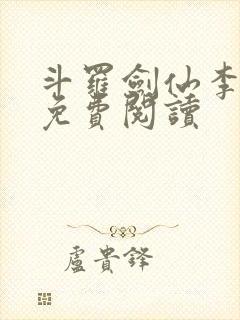 斗羅劍仙李
免費閱讀
盧貴鋒